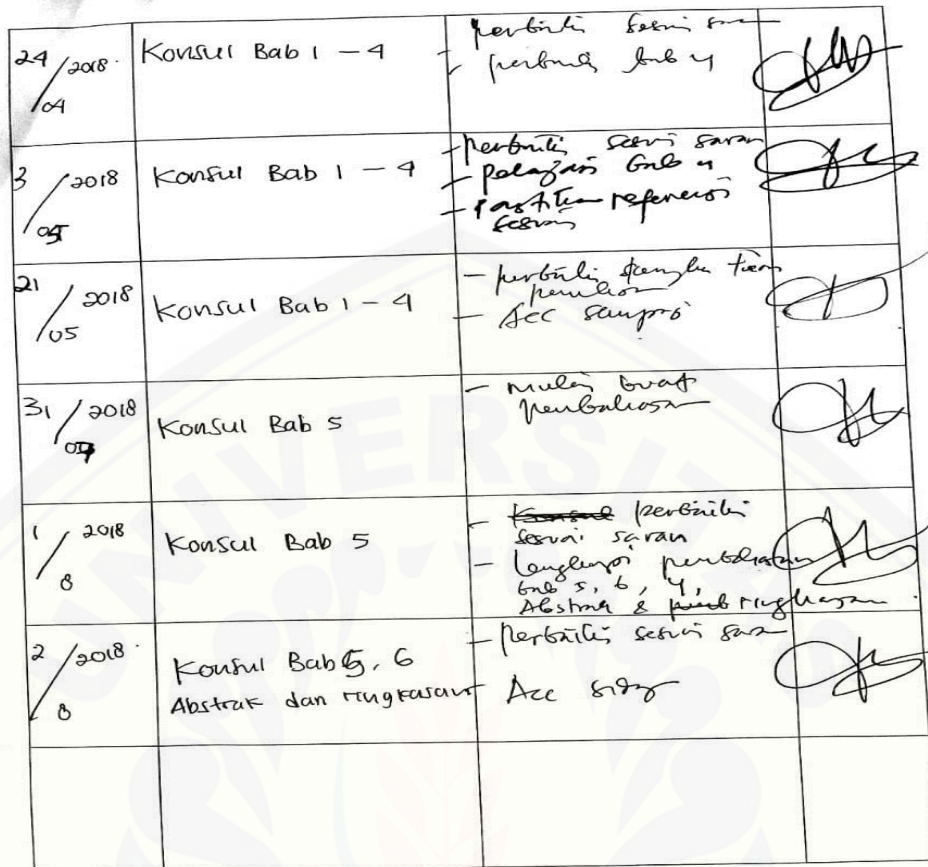 24/04 2018
Konsul Bab 1 - 4
- perbaiki sesuai saran
- perbaiki bab 4
3/05 2018
Konsul Bab 1 - 4
- perbaiki sesuai saran
- pelajari bab 4
- pastikan referensi
sesuai
21/05 2018
Konsul Bab 1 - 4
- perbaiki
- Acc sempro
31/07 2018
Konsul Bab 5
- mulai buat
pembahasan
1/8 2018
Konsul Bab 5
- perbaiki
sesuai saran
- lengkapi pembahasan
bab 5, 6, 4,
Abstrak & ringkasan
2/8 2018
Konsul Bab 5, 6
Abstrak dan ringkasan
- perbaiki sesuai saran
Acc sidang
UNIVERSITAS